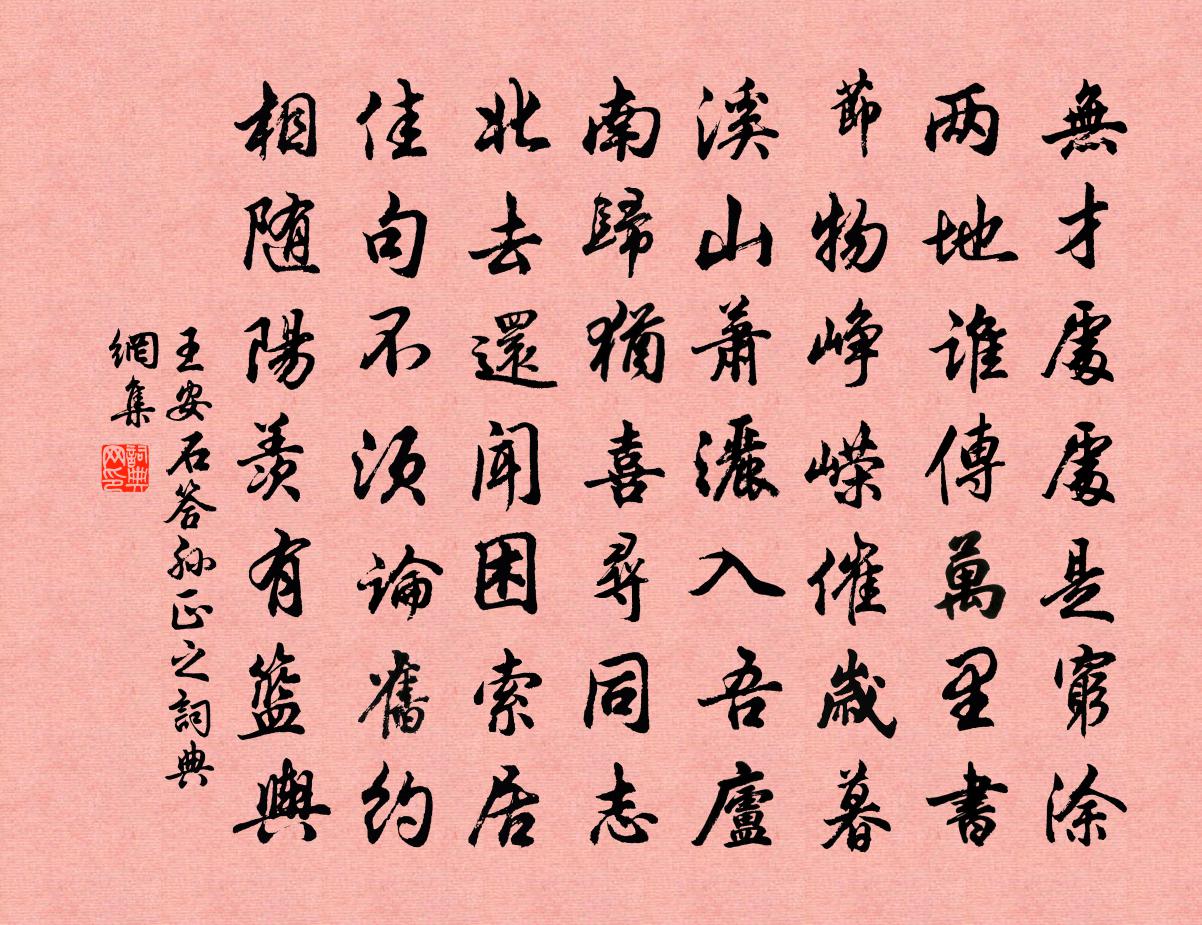 無才處處是窮涂
两地誰傳萬里書
節物崢嶸催歲暮
溪山蕭灑入吾廬
南歸猶喜尋同志
北去還聞困索居
佳句不須論舊約
相随陽羨有籃輿
王安石答孙正之詞典
網集
詞典
网印